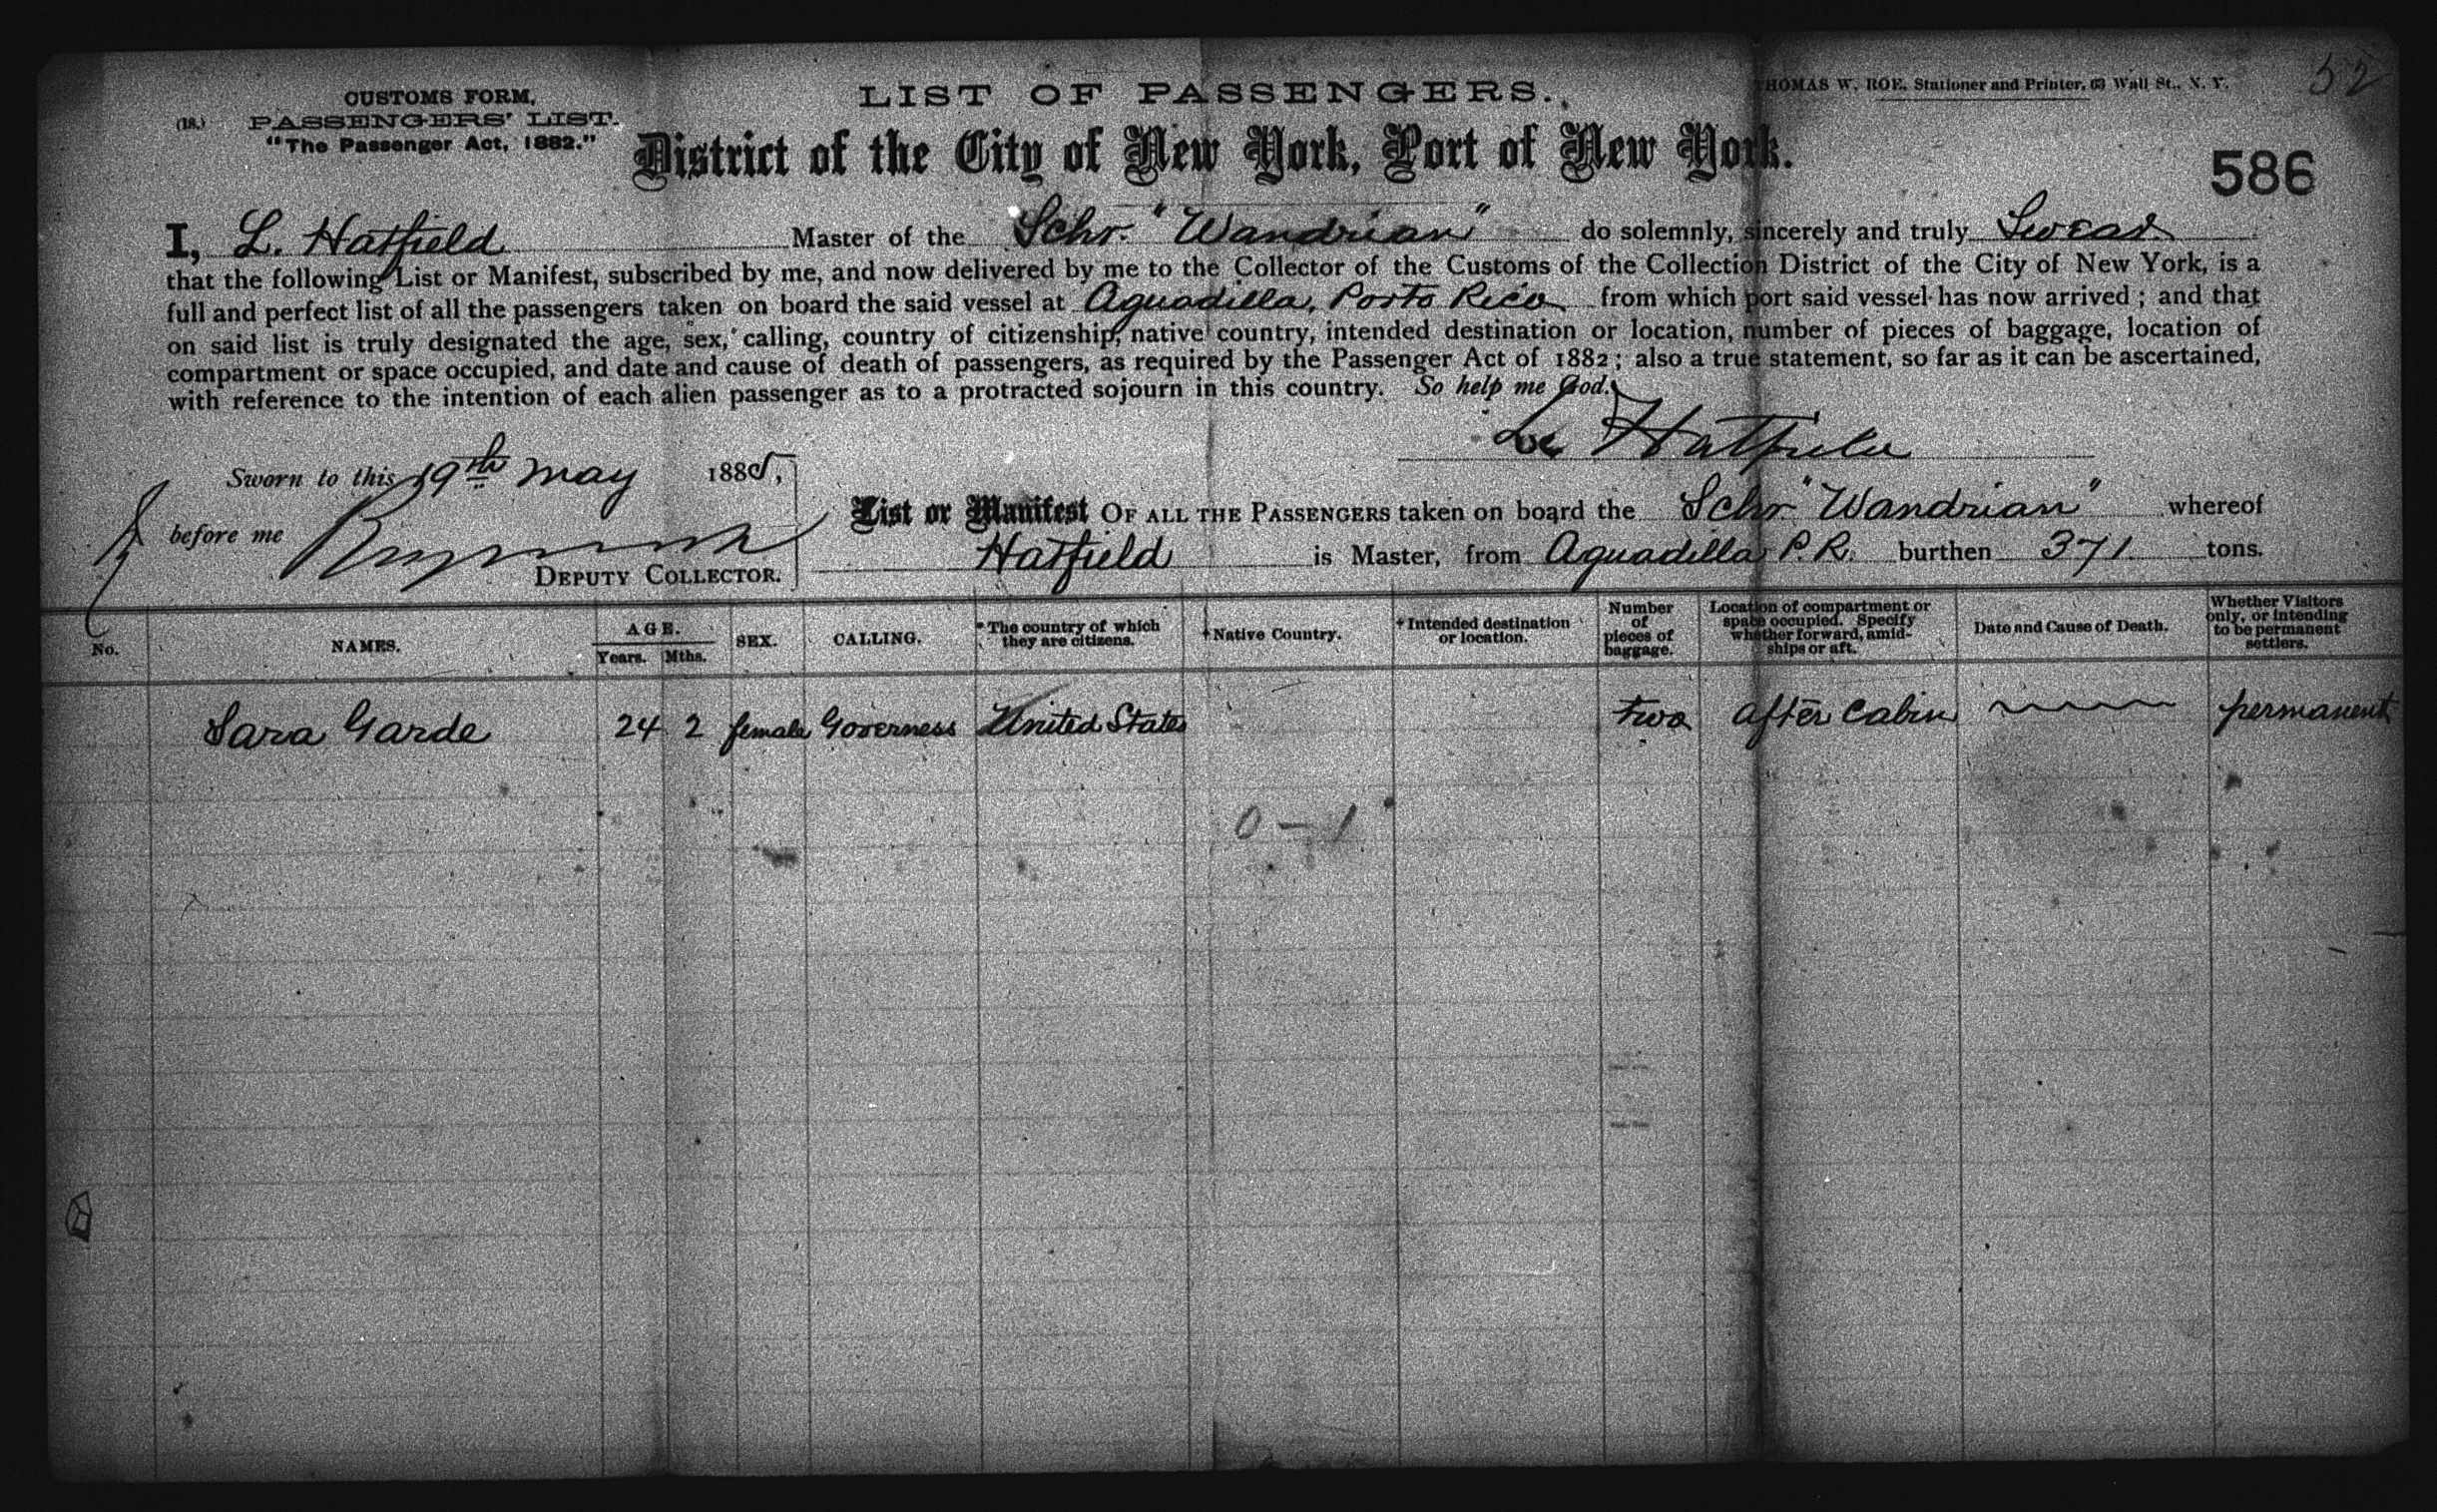 CUSTOMS FORM,
(18.) PASSENGERS' LIST.
"The Passenger Act, 1882."
LIST OF PASSENGERS.
THOMAS W. ROE, Stationer and Printer, 63 Wall St., N. Y.
52
District of the City of New York, Port of New York.
586
I, L. Hatfield Master of the Schr. "Wandrian" do solemnly, sincerely and truly Swear
that the following List or Manifest, subscribed by me, and now delivered by me to the Collector of the Customs of the Collection District of the City of New York, is a
full and perfect list of all the passengers taken on board the said vessel at Aguadilla, Porto Rico from which port said vessel has now arrived; and that
on said list is truly designated the age, sex, calling, country of citizenship, native country, intended destination or location, number of pieces of baggage, location of
compartment or space occupied, and date and cause of death of passengers, as required by the Passenger Act of 1882; also a true statement, so far as it can be ascertained,
with reference to the intention of each alien passenger as to a protracted sojourn in this country. So help me God.
Hatfield
Sworn to this 19th May 1885,
before me
DEPUTY COLLECTOR.
List or Manifest OF ALL THE PASSENGERS taken on board the Schr "Wandrian" whereof
Hatfield is Master, from Aguadilla P.R. burthen 371 tons.
No. NAMES. AGE. Years. Mths. SEX. CALLING. *The country of which they are citizens. †Native Country. †Intended destination or location. Number of pieces of baggage. Location of compartment or space occupied. Specify whether forward, amidships or aft. Date and Cause of Death. Whether Visitors only, or intending to be permanent settlers.
Sara Garde 24 2 female Governess United States two after Cabin permanent
0 - 1